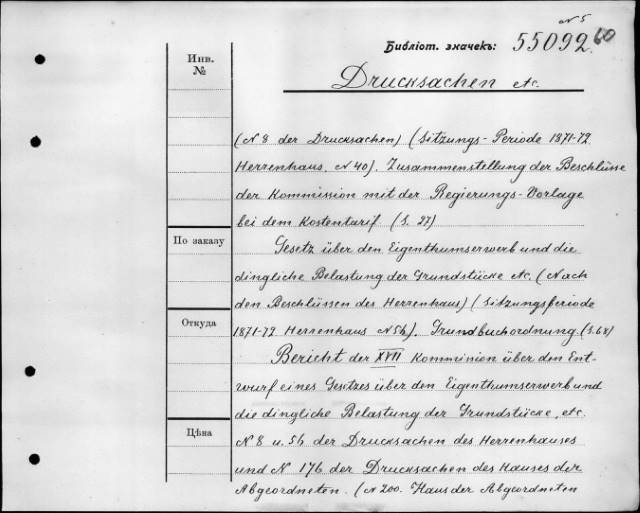 N 5
Библіот. значекъ: 55092 60
Инв. №
Drucksachen etc.
(N 8 der Drucksachen) (Sitzungs-Periode 1871-72
Herrenhaus, N 40). Zusammenstellung der Beschlüsse
der Kommission mit der Regierungs-Vorlage
bei dem Kostentarif. (S. 27)
По заказу
Gesetz über den Eigenthumserwerb und die
dingliche Belastung der Grundstücke etc. (Nach
den Beschlüssen des Herrenhaus) (Sitzungsperiode
Откуда
1871-72 Herrenhaus N 56). Grundbuchordnung (S. 68)
Bericht der XVII Kommission über den Ent-
wurf eines Gesetzes über den Eigenthumserwerb und
die dingliche Belastung der Grundstücke, etc.
Цѣна
N 8 u. 56 der Drucksachen des Herrenhauses
und N 176 der Drucksachen des Hauses der
Abgeordneten. (N 200. Haus der Abgeordneten